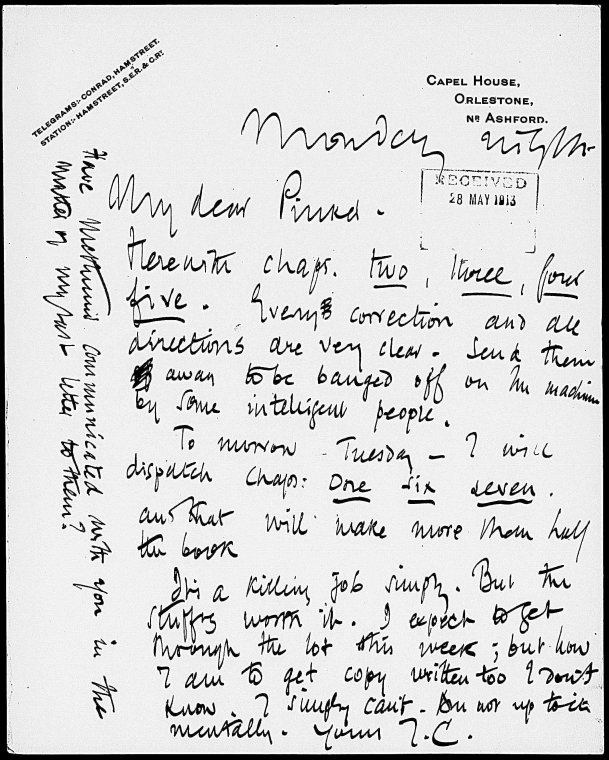 TELEGRAMS:- CONRAD, HAMSTREET.
STATION:- HAMSTREET, S.E.R. & C.RY.
CAPEL HOUSE,
ORLESTONE,
NR ASHFORD.
Monday night
RECEIVED
28 MAY 1913
My dear Pinker.
Herewith chaps. two, three, four
five. Every correction and all
directions are very clear. Send them
away to be banged off on the machine
by some intelligent people.
To morrow - Tuesday - I will
dispatch chaps: One six seven.
and that will make more than half
the book
It's a killing job simply. But the
stuff's worth it. I expect to get
through the lot this week; but how
I am to get copy written too I don't
know. I simply can't. Am not up to it
mentally. Yours J.C.
Have Methuen communicated with you in the
matter of my last letter to them?